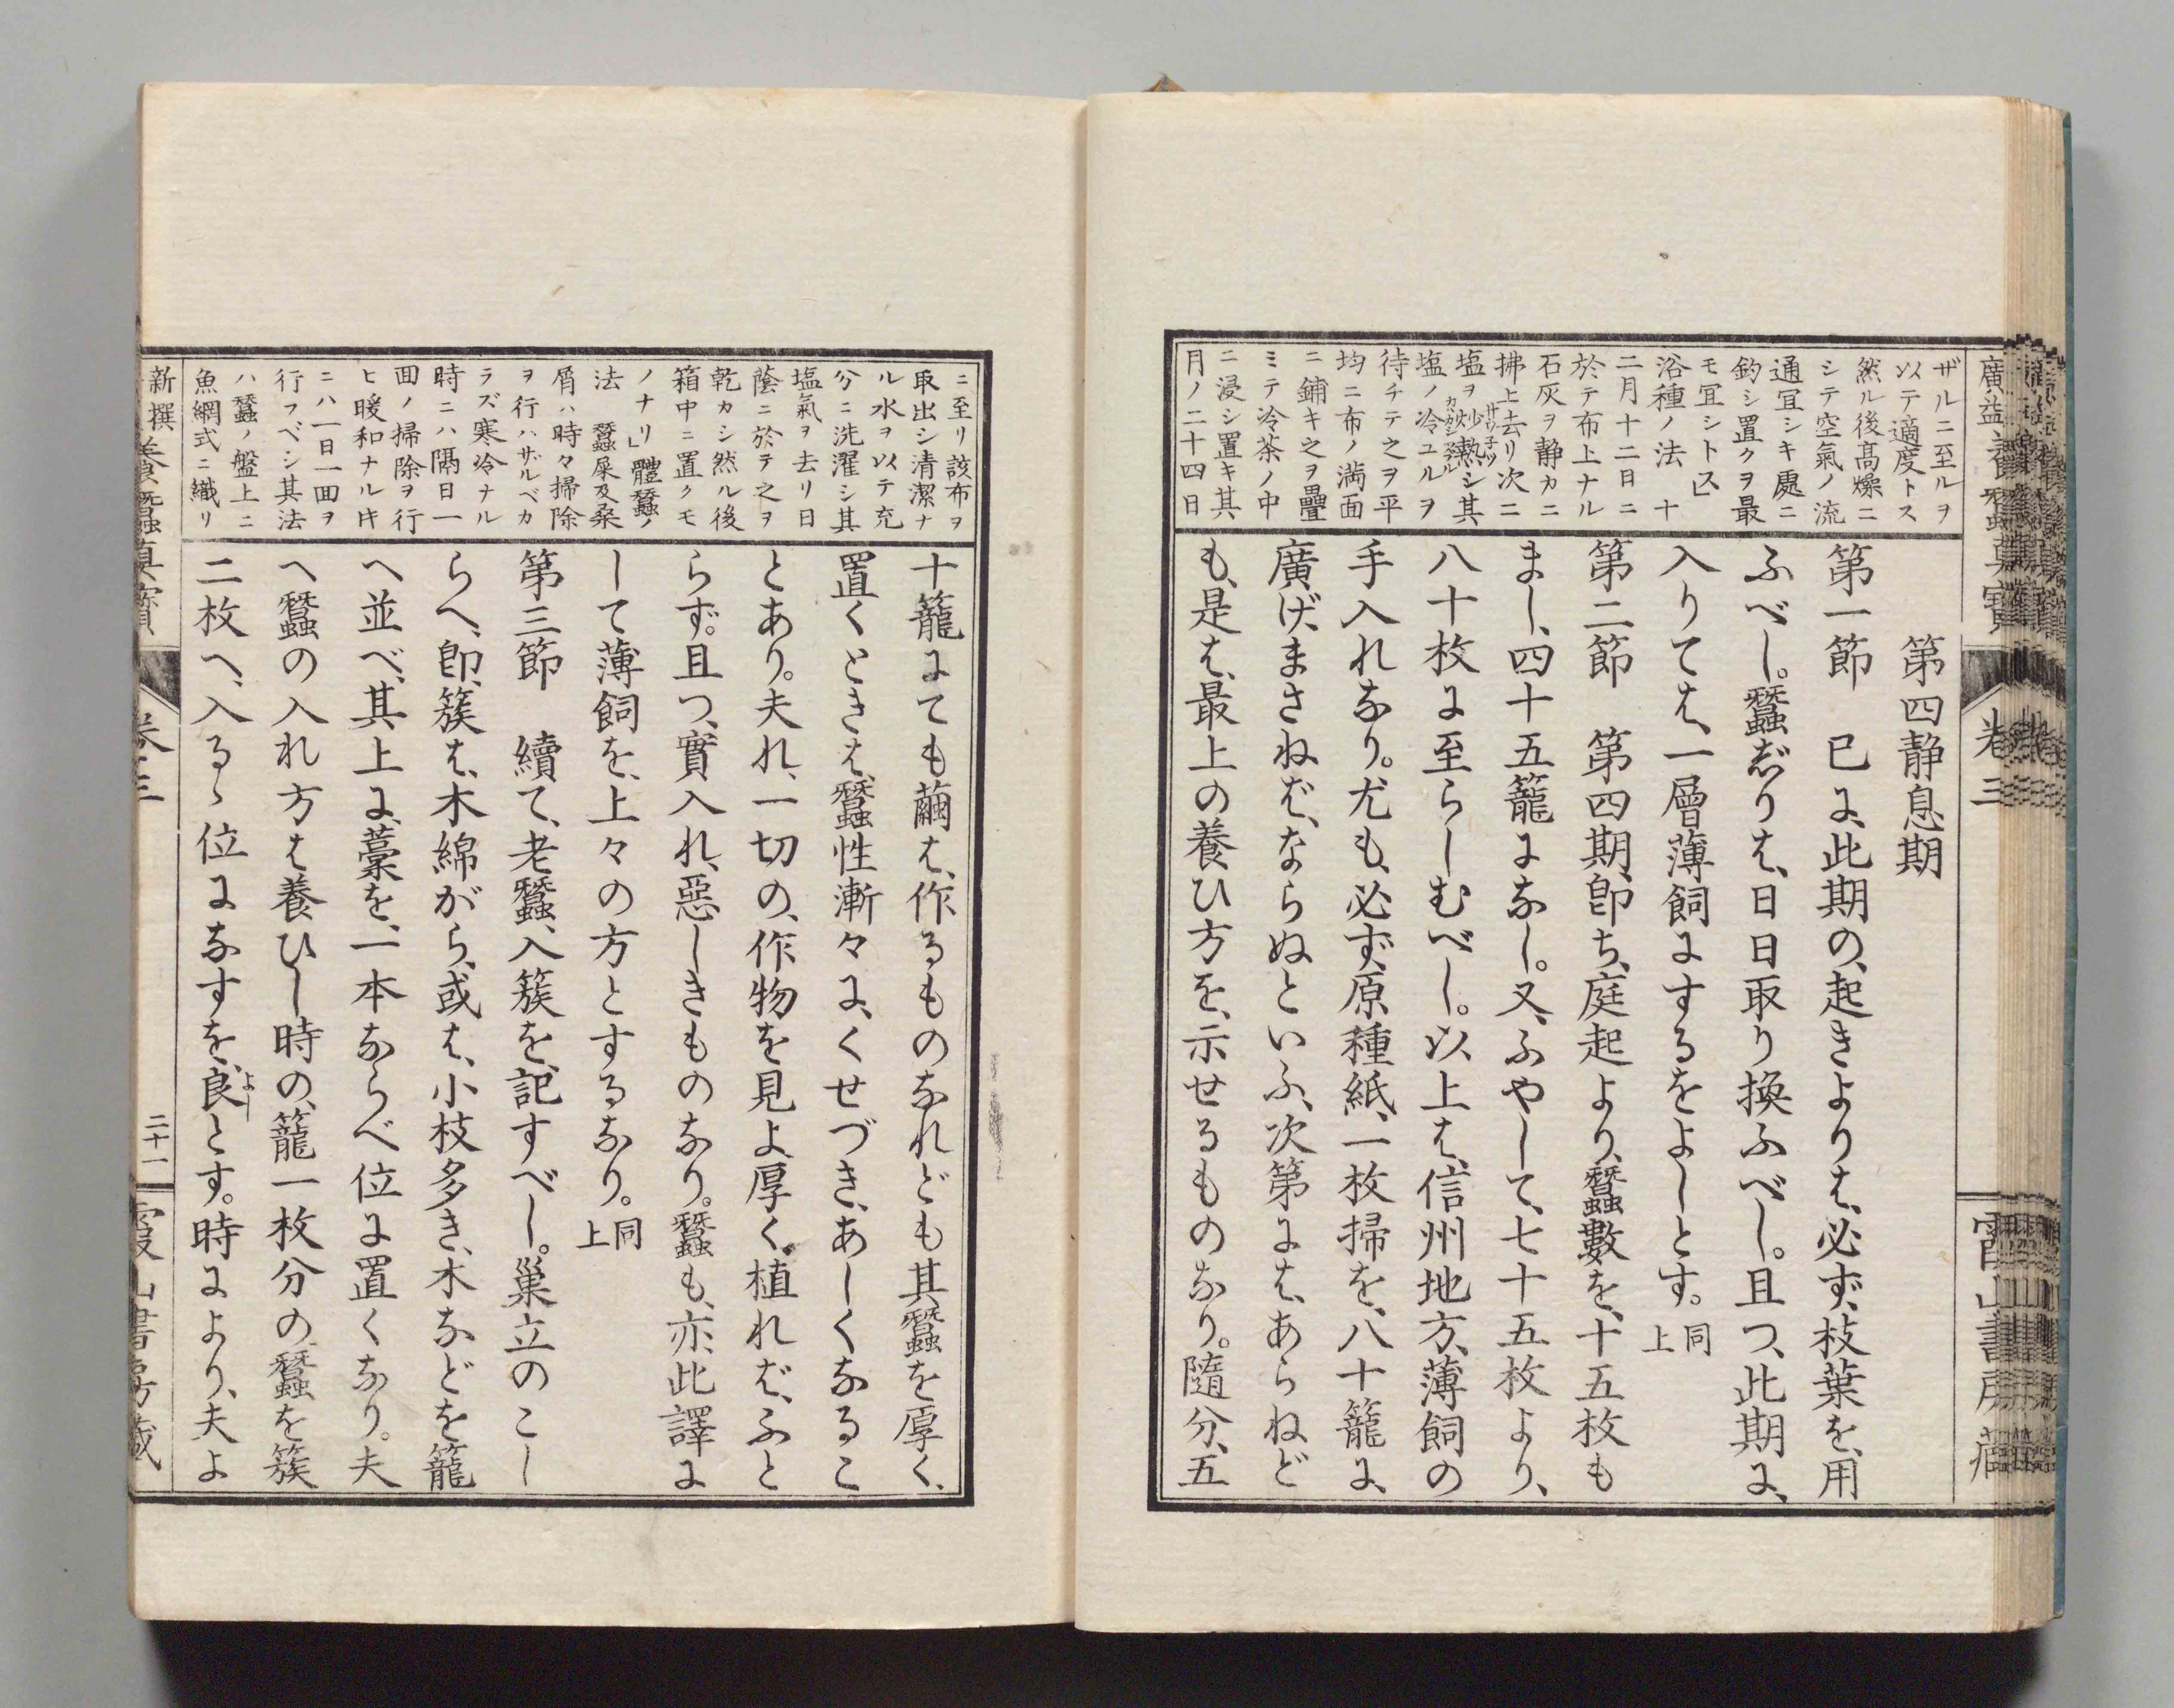 廣益養蠶眞寶
卷三
霞山書房藏
ザルニ至ルヲ
以テ適度トス
然ル後高燥ニ
シテ空氣ノ流
通宜シキ處ニ
釣シ置クヲ最
モ宜シトス」
浴種ノ法 十
二月十二日ニ
於テ布上ナル
石灰ヲ静カニ
拂ヒ去リ次ニ
塩ヲ炒熱シ其
塩ノ冷ユルヲ
待チテ之ヲ平
均ニ布ノ満面
ニ鋪キ之ヲ疊
ミテ冷茶ノ中
ニ浸シ置キ其
月ノ二十四日
第四静息期
第一節 已に、此期の、起きよりは、必ず、枝葉を、用
ふべし。蠶ぢりは、日日取り換ふべし。且つ、此期に、
入りては、一層薄飼にするをよしとす。同上
第二節 第四期、卽ち、庭起より、蠶數を、十五枚も
まし、四十五籠になし。又、ふやして、七十五枚より、
八十枚に至らしむべし。以上は、信州地方、薄飼の
手入れなり。尤も、必ず、原種紙、一枚掃を、八十籠に、
廣げ、まさねば、ならぬといふ、次第には、あらねど
も、是は、最上の養ひ方を、示せるものなり。隨分、五
ニ至リ該布ヲ
取出シ清潔ナ
ル水ヲ以テ充
分ニ洗濯シ其
塩氣ヲ去リ日
蔭ニ於テ之ヲ
乾カシ然ル後
箱中ニ置クモ
ノナリ」體蠶ノ
法 蠶屎及桑
屑ハ時々掃除
ヲ行ハザルベカ
ラズ寒冷ナル
時ニハ隔日一
回ノ掃除ヲ行
ヒ暖和ナル㕝
ニハ一日一回ヲ
行フベシ其法
ハ蠶ノ盤上ニ
魚網式ニ織リ
十籠にても繭は、作るものなれども其蠶を厚く、
置くときは、蠶性漸々に、くせづき、あしくなるこ
とあり。夫れ、一切の、作物を見よ、厚く、植れば、ふと
らず。且つ、實入れ、惡しきものなり。蠶も、亦、此譯に
して薄飼を、上々の方とするなり。同上
第三節 續て、老蠶、入簇を、記すべし。巢立のこし
らへ、卽、簇は、木綿がら、或は、小枝多き、木などを籠
へ並べ、其上に、藁を、一本ならべ位に置くなり。夫
へ蠶の入れ方は養ひし時の、籠一枚分の、蠶を簇
二枚へ、入るゝ位になすを、良とす。時により、夫よ
新撰養蠶眞寶
卷三
二十一
霞山書房藏